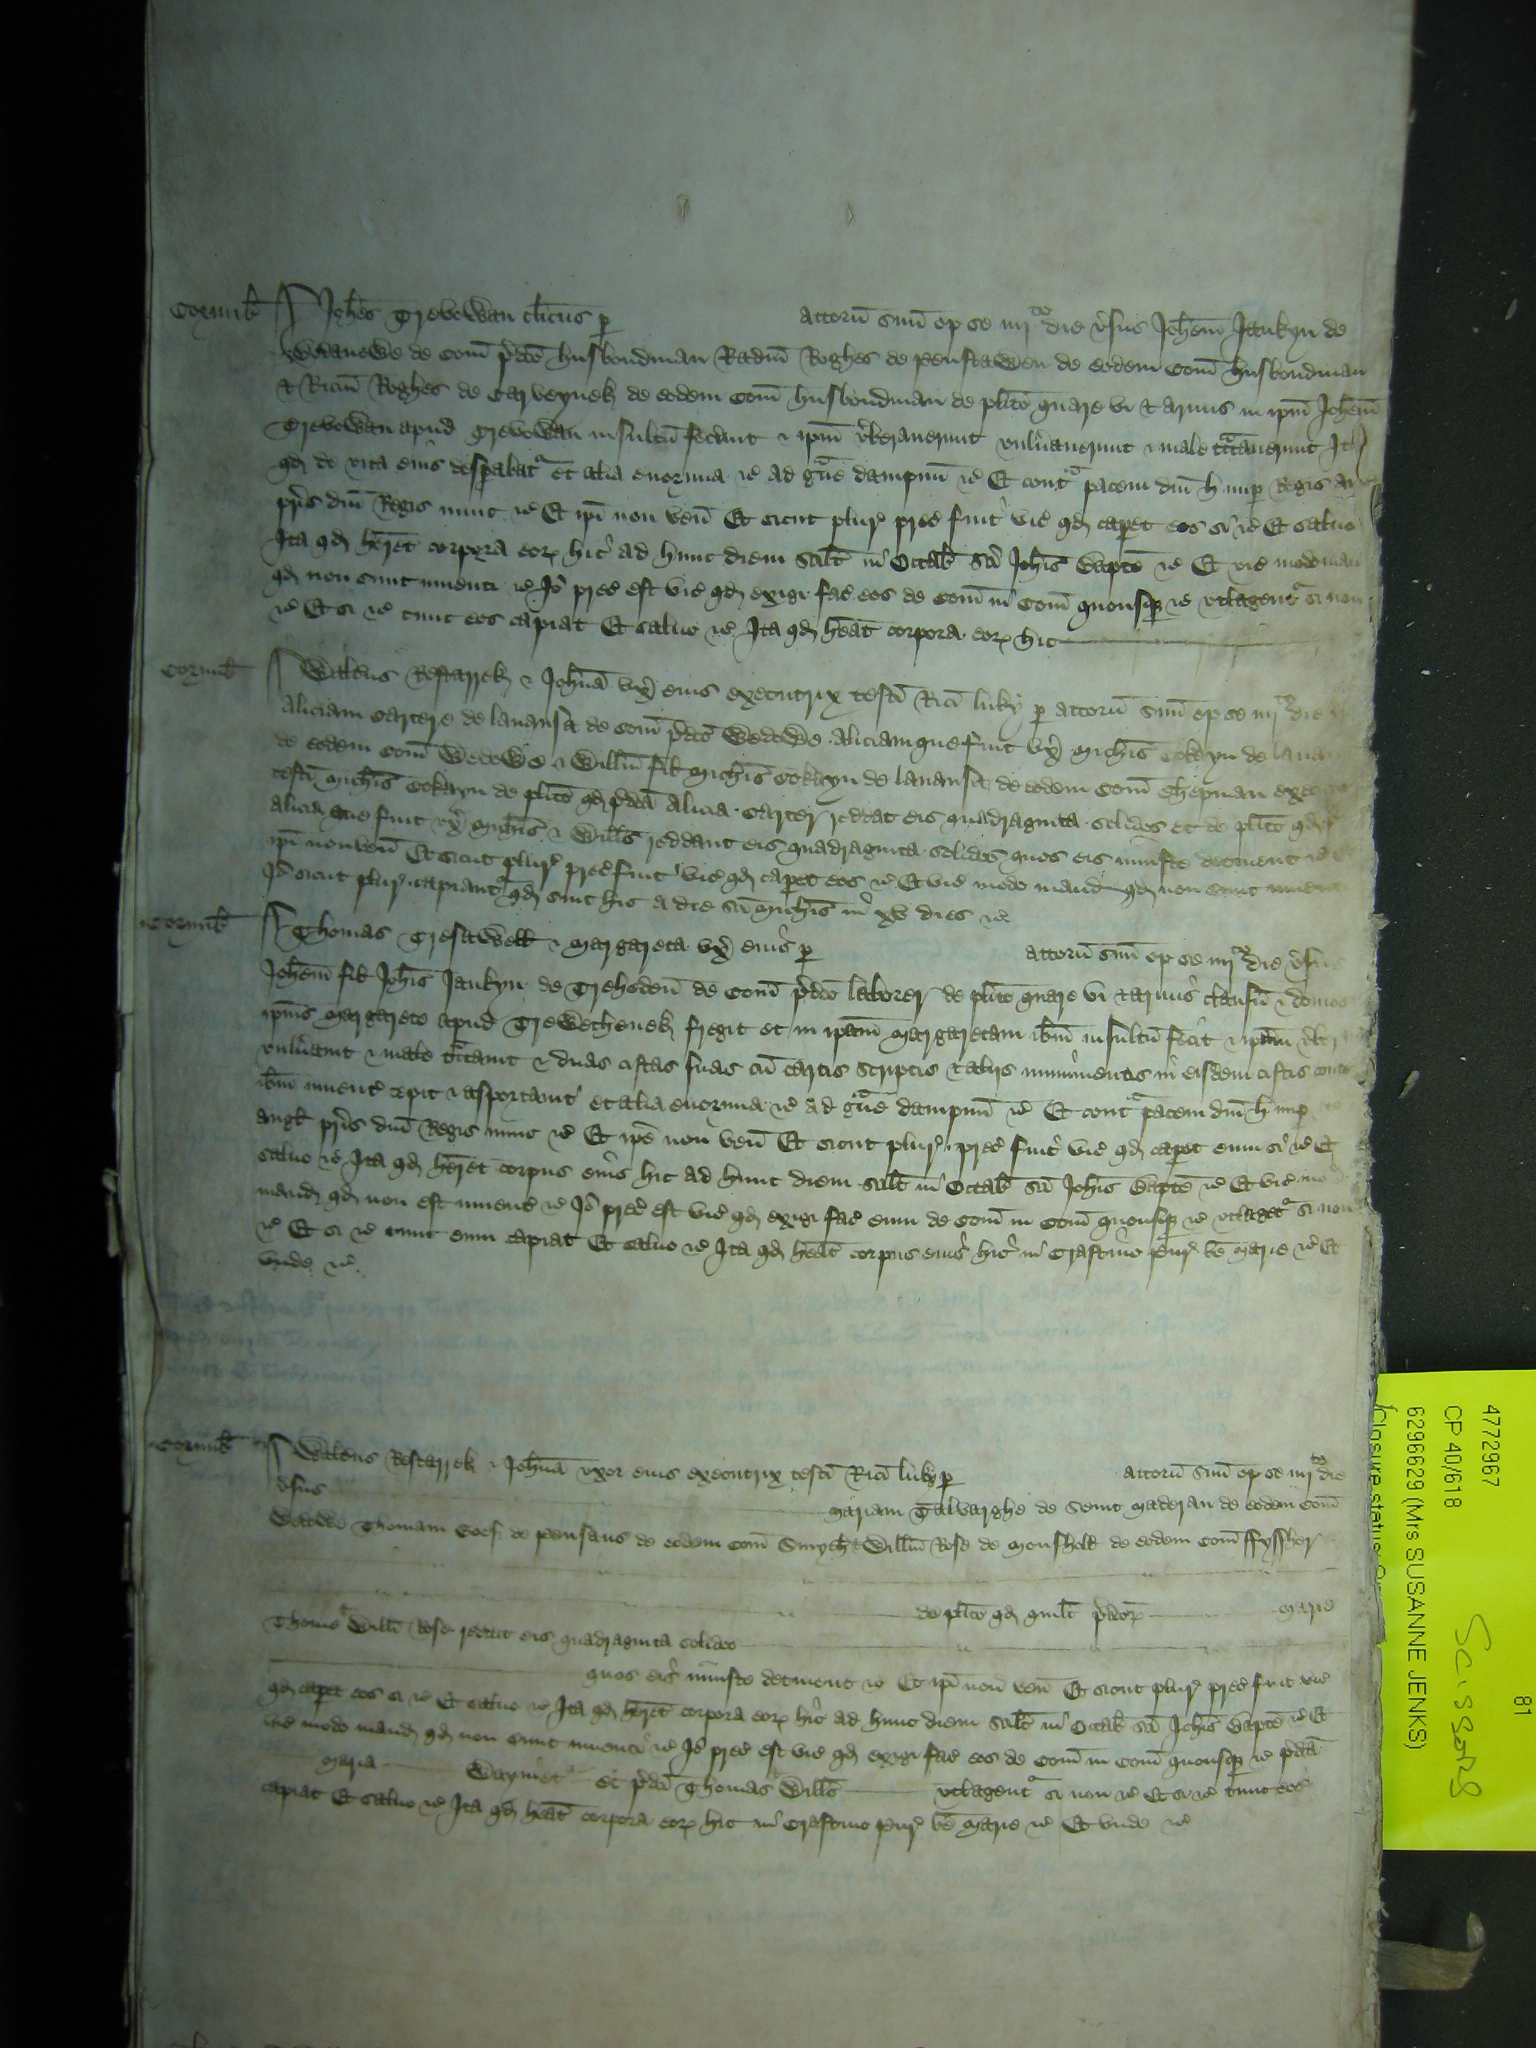 Cornub Johes Trevowan clicus p attorn suu op se iiij to die vsus Johem Jankyn de
de Com pdco husbondman Radm Roghes de Penstawen de eodem Com husbondman
& Ricm Roghes de Carveynek de eodem Com husbondman de plito quare vi & armis in ipm Johem
Trevowan apud Trevowan insultu fecunt & ipm vberaverunt vulnaverunt & male tctaverunt Ita
qd de vita eius despabat et alia enormia &c ad gve dampnu &c Et contra pacem dni H nup Regis
pris dni Regis nunc &c Et ipi non ven Et sicut plur prec fuit vic qd capet eos si &c Et salvo
Ita qd heret corpora eor hic ad hunc diem scilt in Octab sci Johis Bapte &c Et vic modo man
qd non sunt inventi &c Jo prec est vic qd exigi fac eos de Com in Com quousq &c utlagent si non
&c Et si &c tunc eos capiat Et salvo &c Ita qd heat corpora eor hic
Cornub Willms Restarrek & Johna ux eius executrix testi Rici Luky p attorn suu op se iiij to die
Aliciam Cartere de Lanansa de Com pdco Wedowe Aliciam que fuit ux Michis Cokayn de
de eodem Com Wedowe & Willm fil Michis Cokayn de Lanansa de eodem Com Chepman
testi Michis Cokayn de plito qd pdca Alicia Carter reddat eis quadraginta solidos et de plito qd
Alicia que fuit ux Michis & Wills reddant eis quadraginta solidos quos eis iniuste detinent &c
ipi non ven Et sicut plur prec fuit vic qd capet eos &c Et vic modo mand qd non sunt inventi
Jo sicut plur capiant qd sint hic a die sci Michis in xv dies &c
Cornub Thomas Tresawell & Margareta ux eius p attorn suu op se iiij to die vsus
Johem fil Johis Jankyn de de Com pdco laborer de plito quare vi & armis clausu & domos
ipius Margarete apud Trewethenek fregit et in ipam Margaretam ibm insultu fecit & ipam
vulnavit & male tctavit & duas cistas suas cu cartis scriptis & aliis munimentis in eisdem cistis
ibm invent cepit & asportavit et alia enormia &c ad gve dampnu &c Et contra pacem dni H nup
Angl pris dni Regis nunc &c Et ipe non ven Et sicut plur prec fuit vic qd capet eum si &c Et
salvo &c Ita qd heret corpus eius hic ad hunc diem scilt in Octab sci Johis Bapte &c Et vic
mand qd non est invent &c Jo prec est vic qd exigi fac eum de Com in Com quousq &c utlaget si non
&c Et si &c tunc eum capiat Et salvo &c Ita qd heat corpus eius hic in Crastino pur be Marie &c Et
unde &c
Cornub Willms Restarrek & Johna uxor eius executrix testi Rici Luky p attorn suu op se iiij to die
vsus Mariam Talvarghe de Seint Maderan de eodem Com
Wedowe Thomam de Pensans de eodem Com Smyth & Willm Rose de Moushole de eodem Com ffyssher
de plito qd quilt pdcor Marie
Thome & Willi Rose reddat eis quadraginta solidos
quos eis iniuste detinent &c Et ipi non ven Et sicut plur prec fuit vic
qd capet eos si &c Et salvo &c Ita qd heret corpora eor hic ad hunc diem scilt in Octab sci Johis Bapte &c Et
vic modo mand qd non sunt inventi &c Jo prec est vic qd exigi fac eos de Com in Com quousq &c pdca
Maria Wayviet et pdci Thomas & Wills utlagent si non &c Et si &c tunc eos
capiat Et salvo &c Ita qd heat corpora eor hic in Crastino pur be Marie &c Et unde &c
81
4772967
CP 40/618
6296629 (Mrs SUSANNE JENKS)
Closure status